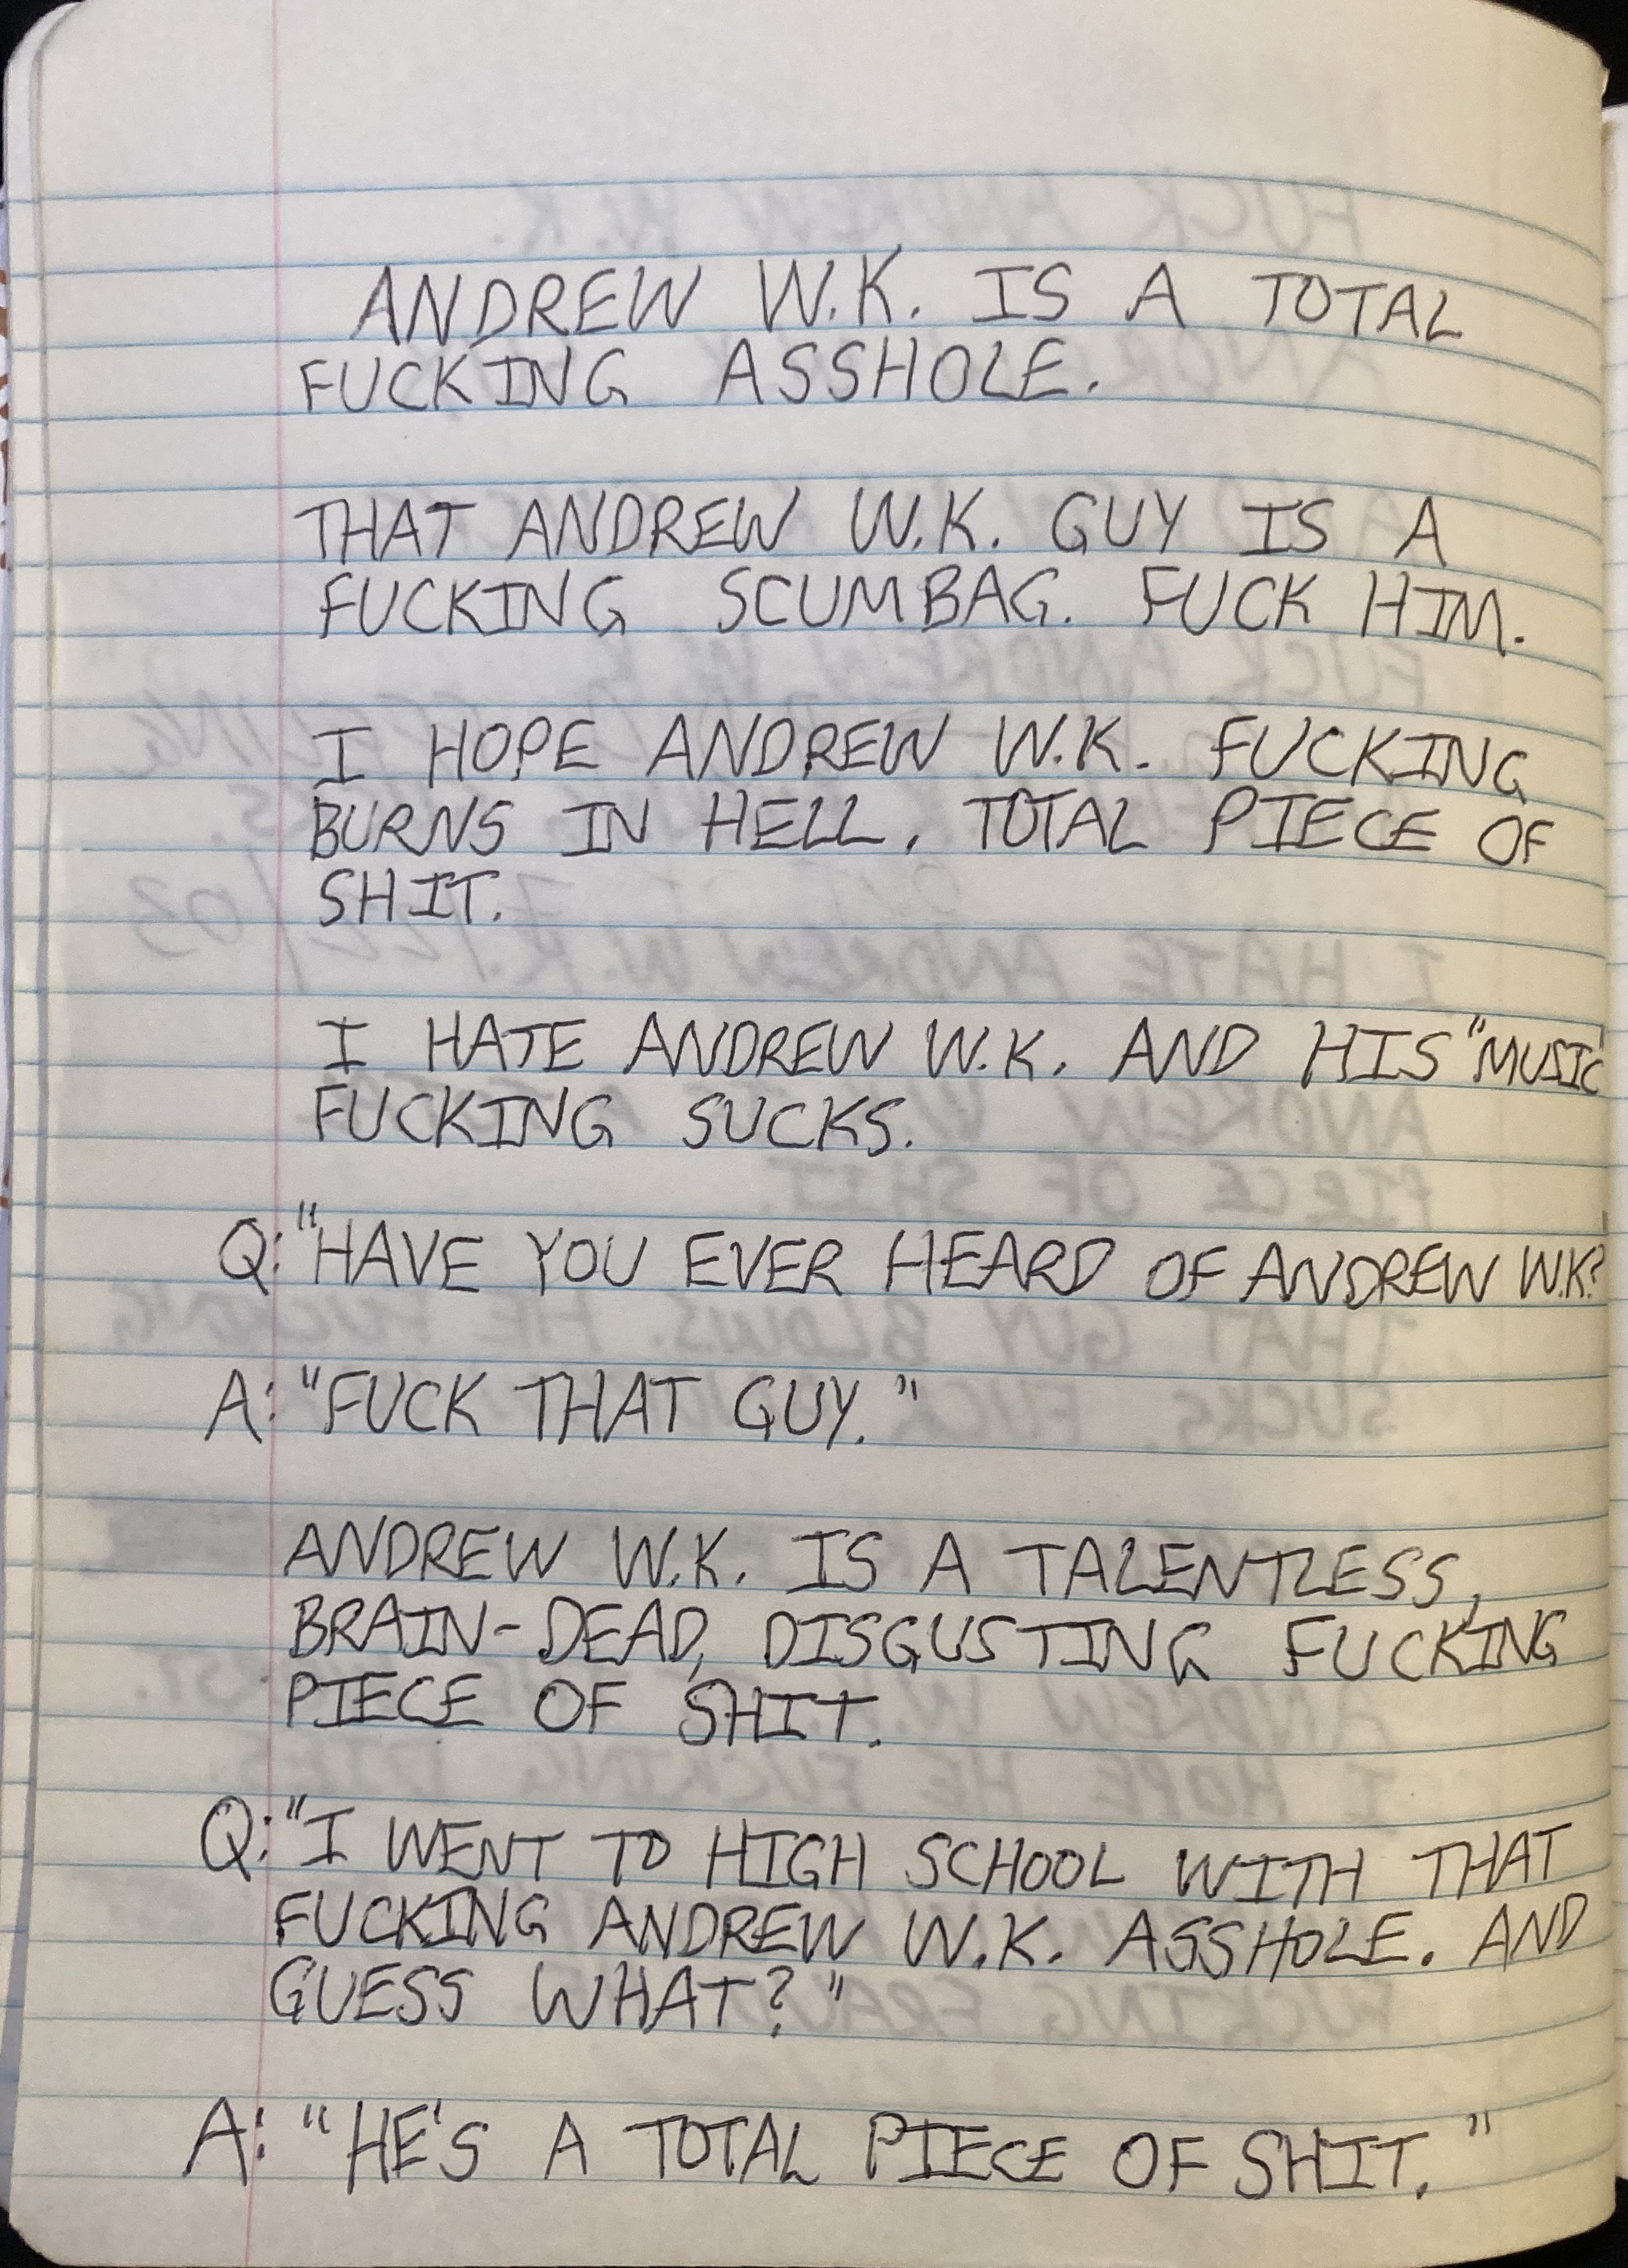 ANDREW W.K. IS A TOTAL
FUCKING ASSHOLE.
THAT ANDREW W.K. GUY IS A
FUCKING SCUMBAG. FUCK HIM.
I HOPE ANDREW W.K. FUCKING
BURNS IN HELL. TOTAL PIECE OF
SHIT.
I HATE ANDREW W.K. AND HIS "MUSIC
FUCKING SUCKS.
Q: "HAVE YOU EVER HEARD OF ANDREW W.K?
A: "FUCK THAT GUY."
ANDREW W.K. IS A TALENTLESS,
BRAIN-DEAD, DISGUSTING FUCKING
PIECE OF SHIT.
Q: "I WENT TO HIGH SCHOOL WITH THAT
FUCKING ANDREW W.K. ASSHOLE. AND
GUESS WHAT?"
A: "HE'S A TOTAL PIECE OF SHIT."